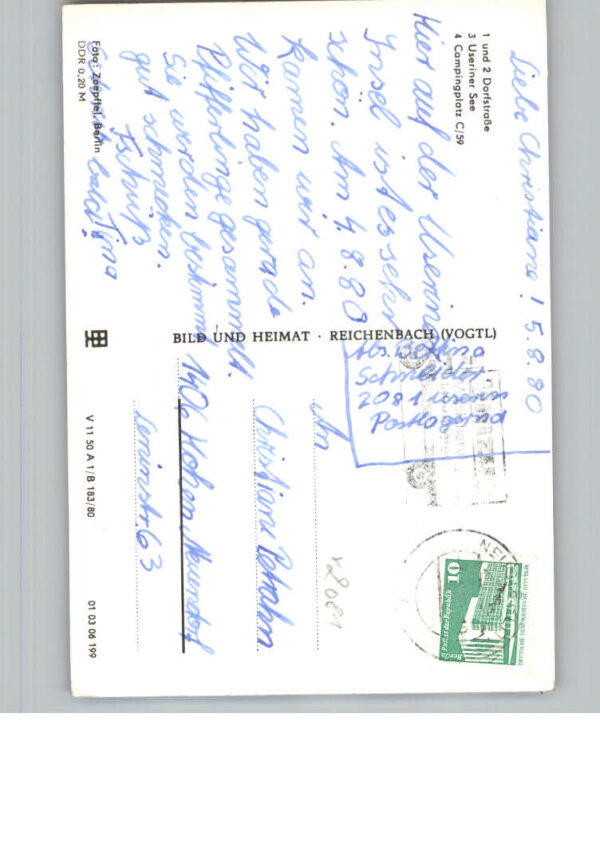 1 und 2 Dorfstraße
3 Useriner See
4 Campingplatz C/59
Liebe Christiane! 5.8.80
Hier auf der Useriner
Insel ist es sehr
schön. Am 4.8.80
kamen wir an.
Wir haben gerade
Pfifferlinge gesammelt.
Sie werden bestimmt
gut schmecken.
Tschüß
Tina
Foto: Zoepffel, Berlin
DDR 0,20 M
BILD UND HEIMAT · REICHENBACH (VOGTL)
V 11 50 A 1/B 183/80
01 03 06 199
Abs. Bettina
2081 Userin
Postlagernd
An
Christiane
1406 Hohen Neuendorf
Leninstr. 63
v2081
10
Berlin Palast der Republik
DEUTSCHE DEMOKRATISCHE REPUBLIK